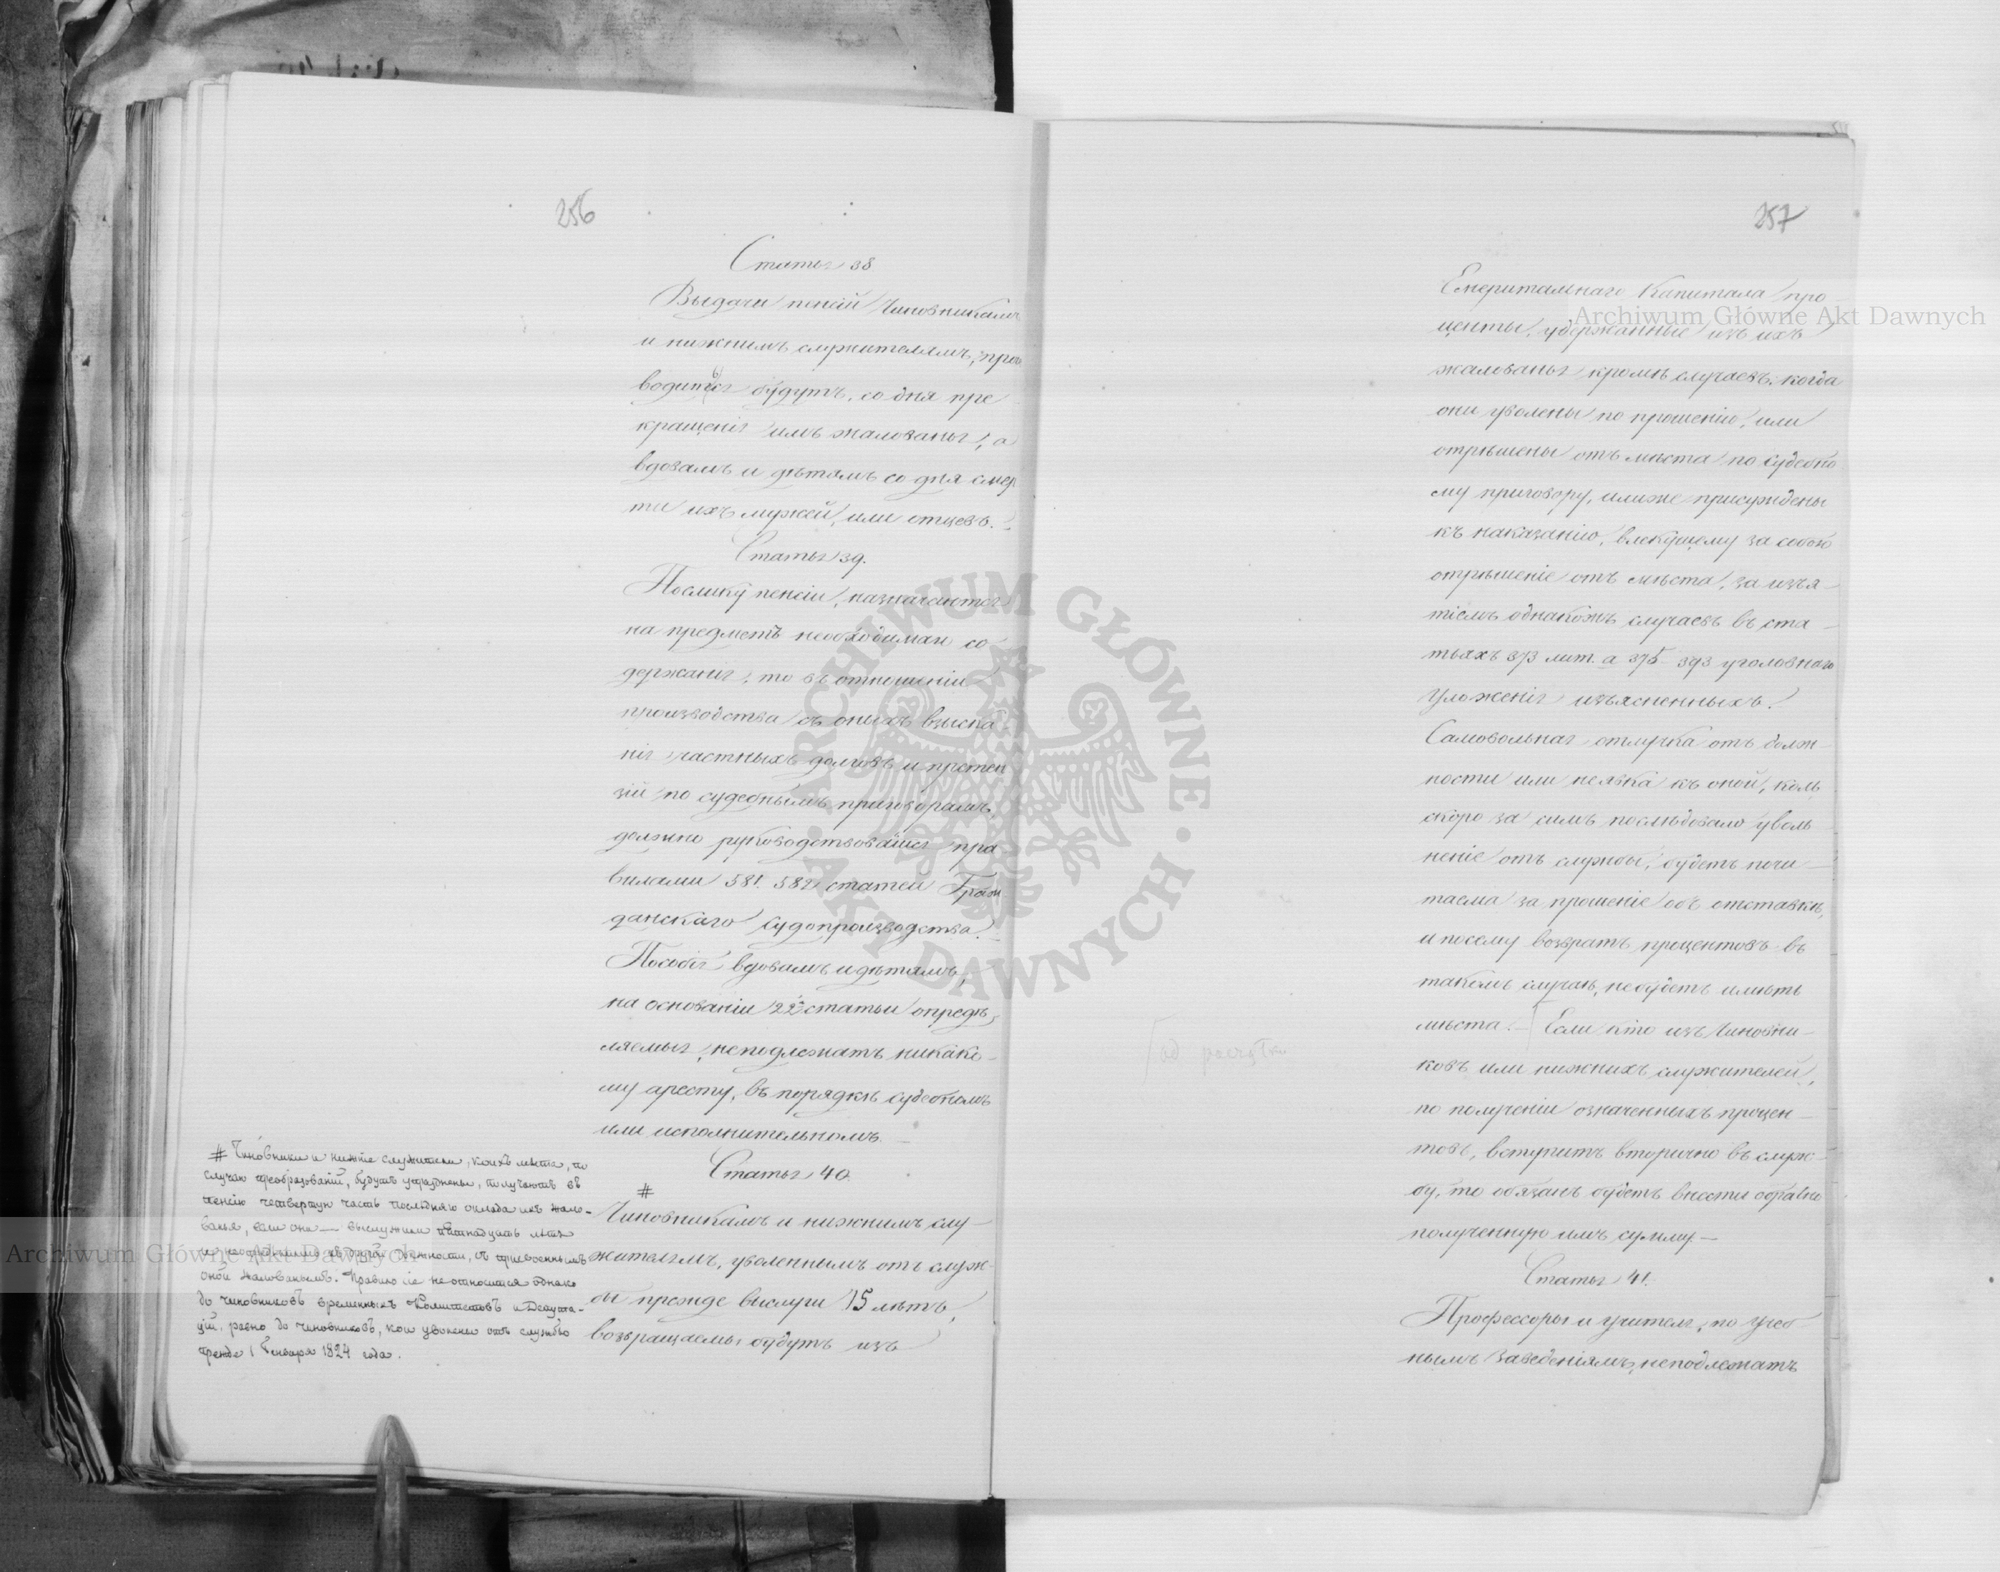 256
Статья 38
Выдачи пенсій Чиновникамъ
и нижнимъ служителямъ, произ
водиться будутъ, со дня пре
кращенія имъ жалованья, а
вдовамъ и дѣтямъ со дня смер
ти ихъ мужей, или отцевъ.
Статья 39.
Поелику пенсіи, назначаются
на предметъ необходимаго со
держанія, то въ отношеніи
производства съ оныхъ взыска
нія частныхъ долговъ и претен
зій по судебнымъ приговорамъ,
должно руководствоваться пра
вилами 581. 582 статей Граж
данскаго судопроизводства.
Пособія вдовамъ и дѣтямъ,
на основаніи 22й статьи опредѣ
ляемыя, неподлежатъ никако-
му аресту, въ порядкѣ судебномъ
или исполнительномъ.
Статья 40.
#
Чиновникамъ и нижнимъ слу-
жителямъ, уволеннымъ отъ служ-
бы прежде выслуги 15 лѣтъ,
возвращаемы будутъ изъ
# Чиновники и нижніе служители, коихъ мѣста, по
случаю преобразованій, будутъ упразднены, получаютъ въ
пенсію четвертую часть послѣдняго оклада ихъ жало-
ванья, если они — выслужили пятнадцать лѣтъ
и неопредѣлены къ другой должности, съ присвоеннымъ
оной жалованьемъ. Правило сіе не относится однако
до чиновниковъ временныхъ Комитетовъ и Депута-
цій, равно до чиновниковъ, кои уволены отъ службы
прежде 1 Января 1824 года.
257
Емеритальнаго Капитала про-
центы, удержанные изъ ихъ
жалованья кромѣ случаевъ, когда
они уволены по прошенію, или
отрѣшены отъ мѣста по судебно
му приговору, илиже присуждены
къ наказанію, влекущему за собою
отрѣшеніе отъ мѣста, за изъя-
тіемъ однакожъ случаевъ въ ста-
тьяхъ 373 лит. а 375 - 393 уголовнаго
уложенія изъясненныхъ.
Самовольная отлучка отъ долж-
ности или неявка къ оной, коль
скоро за симъ послѣдовало уволь
неніе отъ службы, будетъ почи-
таема за прошеніе объ отставкѣ,
и посему возвратъ процентовъ въ
такомъ случаѣ, небудетъ имѣть
мѣста. — Если кто изъ Чиновни-
ковъ или нижнихъ служителей,
по полученіи означенныхъ процен-
товъ, вступитъ вторично въ служ-
бу, то обязанъ будетъ внести обратно
полученную имъ сумму. —
od początku
Статья 41.
Профессоры и учителя, по учеб
нымъ Заведеніямъ, неподлежатъ
Archiwum Główne Akt Dawnych
Archiwum Główne Akt Dawnych
ARCHIWUM GŁÓWNE
AKT DAWNYCH